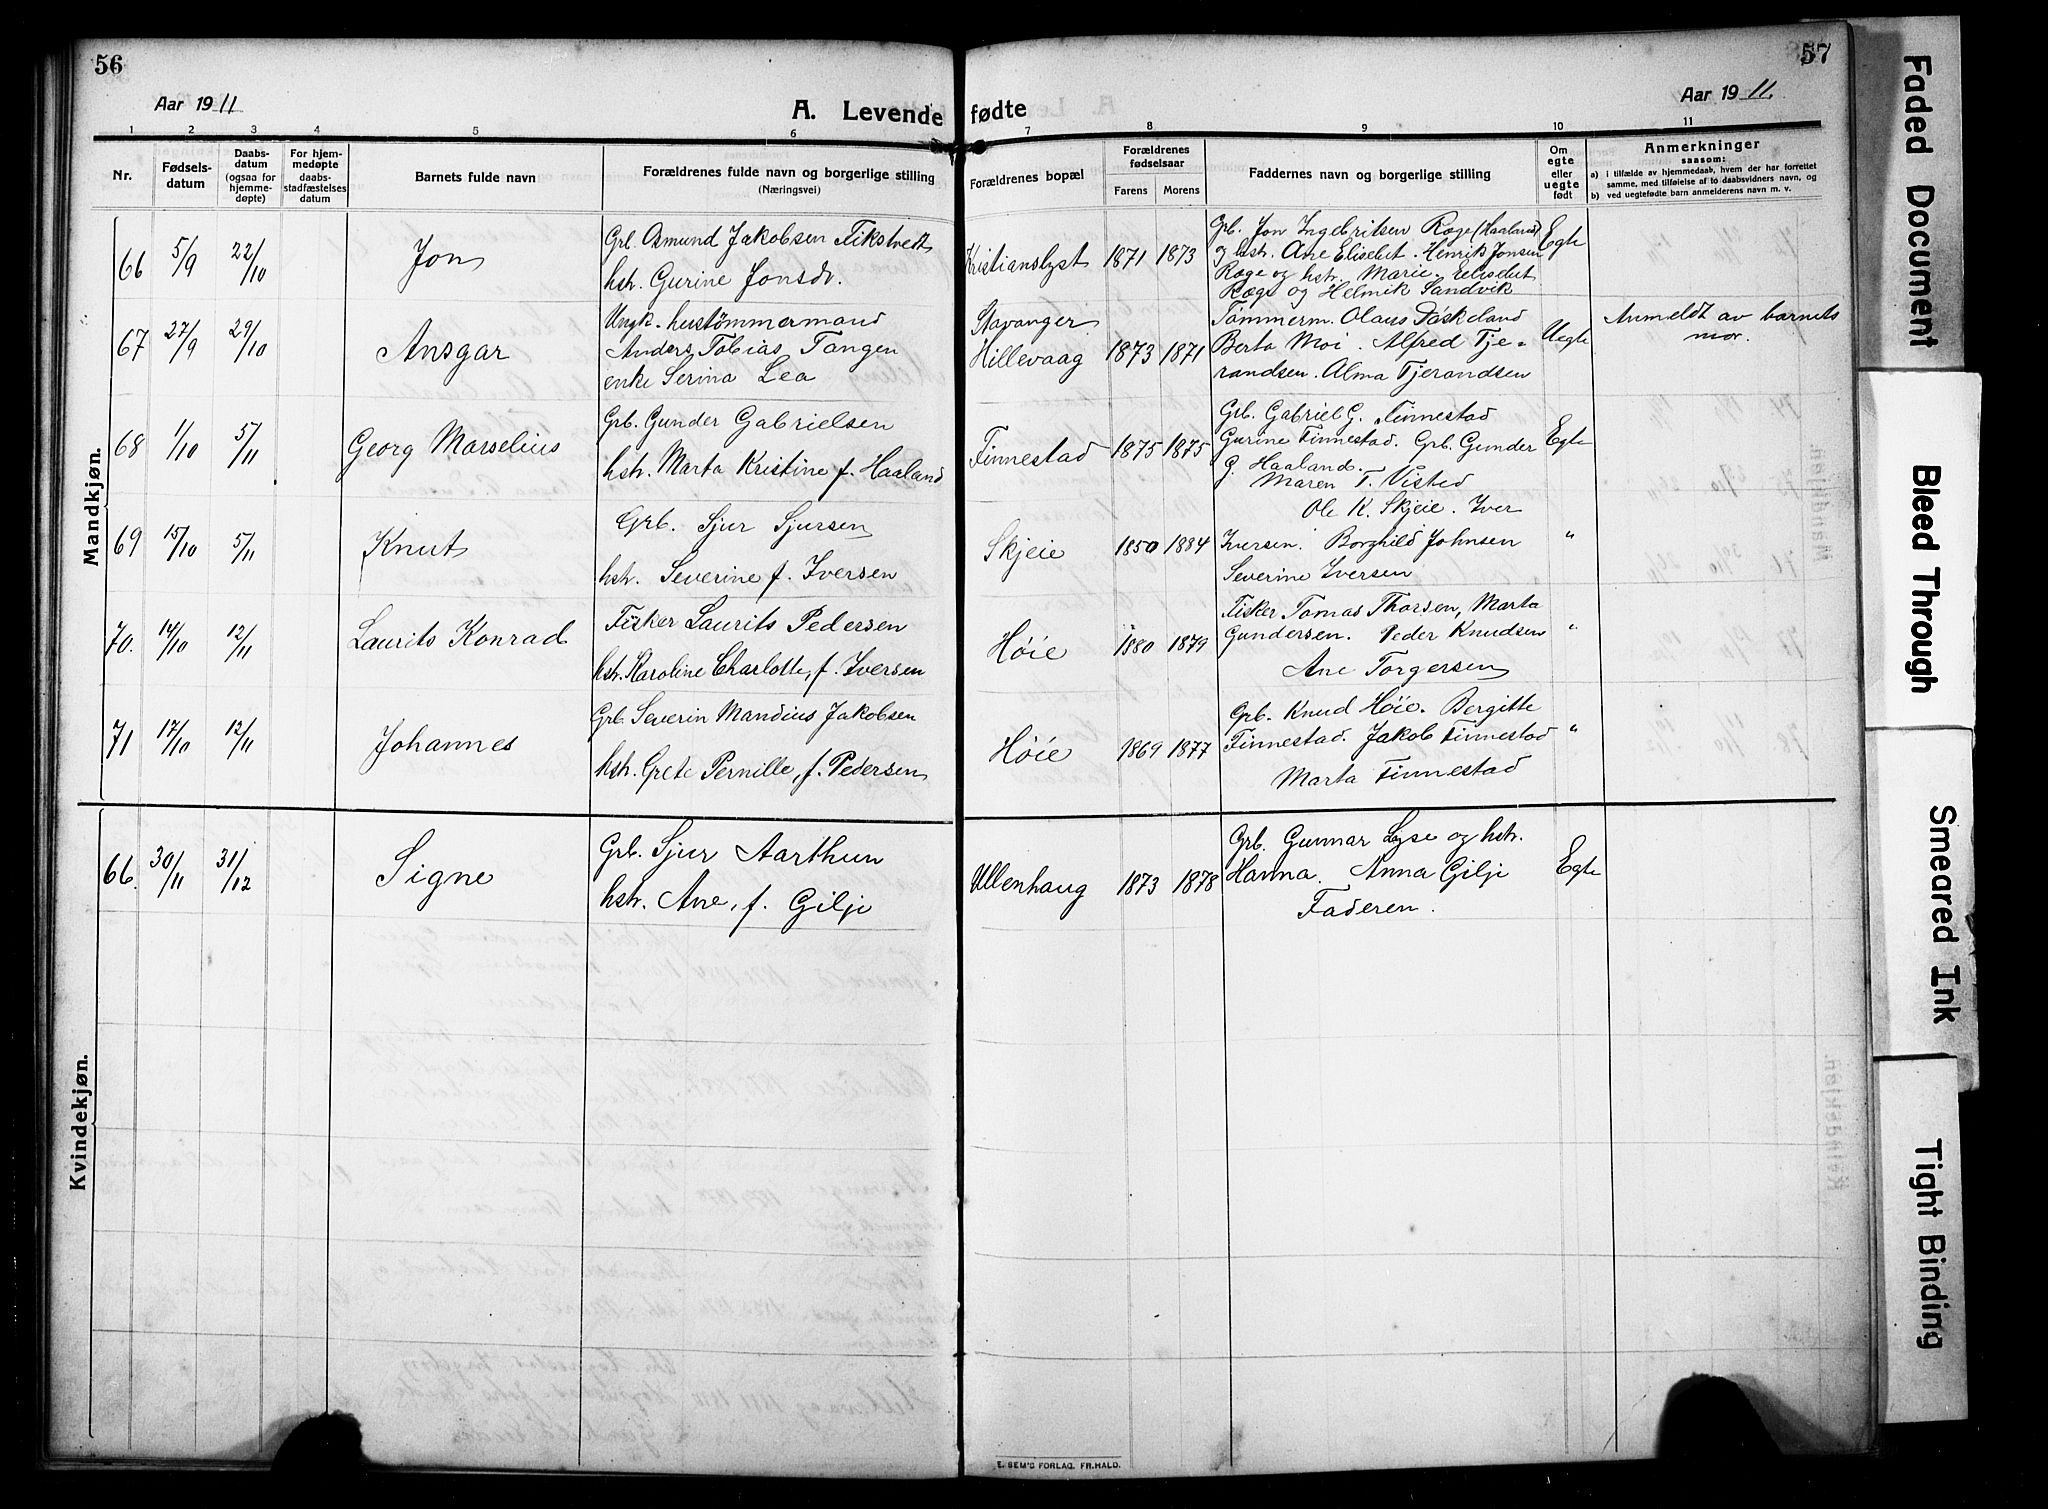 56
57
Aar 1911
A. Levende fødte
Aar 1911.
1 2 3 4 5 6 7 8 9 10 11
Nr.
Fødsels-
datum
Daabs-
datum
(ogsaa for
hjemme-
døpte)
For hjem-
medøpte
daabs-
stadfæstelses
datum
Barnets fulde navn
Forældrenes fulde navn og borgerlige stilling
(Næringsvei)
Forældrenes bopæl
Forældrenes
fødselsaar
Farens Morens
Faddernes navn og borgerlige stilling
Om
egte
eller
uegte
født
Anmerkninger
saasom:
a) i tilfælde av hjemmedaab, hvem der har forrettet
samme, med tilføielse af to daabsvidners navn, og
b) ved uegtefødt barn anmelderens navn m. v.
Mandkjøn.
66 5/9 22/10 Jon
Grb. Osmund Jakobsen Tikstvett
hstr. Gurine Jonsdr.
Kristianslyst 1871 1873
Grb. Jon Ingebritsen Røge (Haaland)
og hstr. Ane Elisebet. Henrik Jonsen
Røge og hstr. Marie. Elisebet
Røge og Helmik Sandvik
Egte
67 27/9 29/10 Ansgar
Ungk. hustømmermand
Anders Tobias Tangen
enke Serina Lea
Stavanger
Hillevaag 1873 1871
Tømmerm. Olaus Døskeland
Berta Moi. Alfred Tje-
randsen. Alma Tjerandsen
Uegte
Anmeldt av barnets
mor.
68 1/10 5/11 Georg Marselius
Grb. Gunder Gabrielsen
hstr. Marta Kristine f. Haaland
Finnestad 1875 1875
Grb. Gabriel G. Finnestad
Gurine Finnestad. Grb. Gunder
G. Haaland.
Maren T. Visted
Egte
69 15/10 5/11 Knut
Grb. Sjur Sjursen
hstr. Severine f. Iversen
Skjeie 1850 1884
Ole K. Skjeie. Iver
Iversen. Borghild Johnsen
Severine Iversen
"
70. 14/10 12/11 Laurits Konrad
Fisker Laurits Pedersen
hstr. Karoline Charlotte, f. Iversen
Høie 1880 1879
Fisker Tomas Thorsen, Marta
Gundersen. Peder Knudsen
Ane Torgersen
"
71 17/10 12/11 Johannes
Grb. Severin Mandius Jakobsen
hstr. Grete Pernille, f. Pedersen
Høie 1869 1877
Grb. Knud Høie. Bergitte
Finnestad. Jakob Finnestad
Marta Finnestad
"
Kvindekjøn.
66. 30/11 31/12 Signe
Grb. Sjur Aarthun
hstr. Ane, f. Gilje
Ullenhaug 1873 1878
Grb. Gunnar Lyse og hstr.
Hanna. Anna Gilje
Faderen.
Egte
E. SEM'S FORLAG, FR.HALD.
Faded Document
Bleed Through
Smeared Ink
Tight Binding